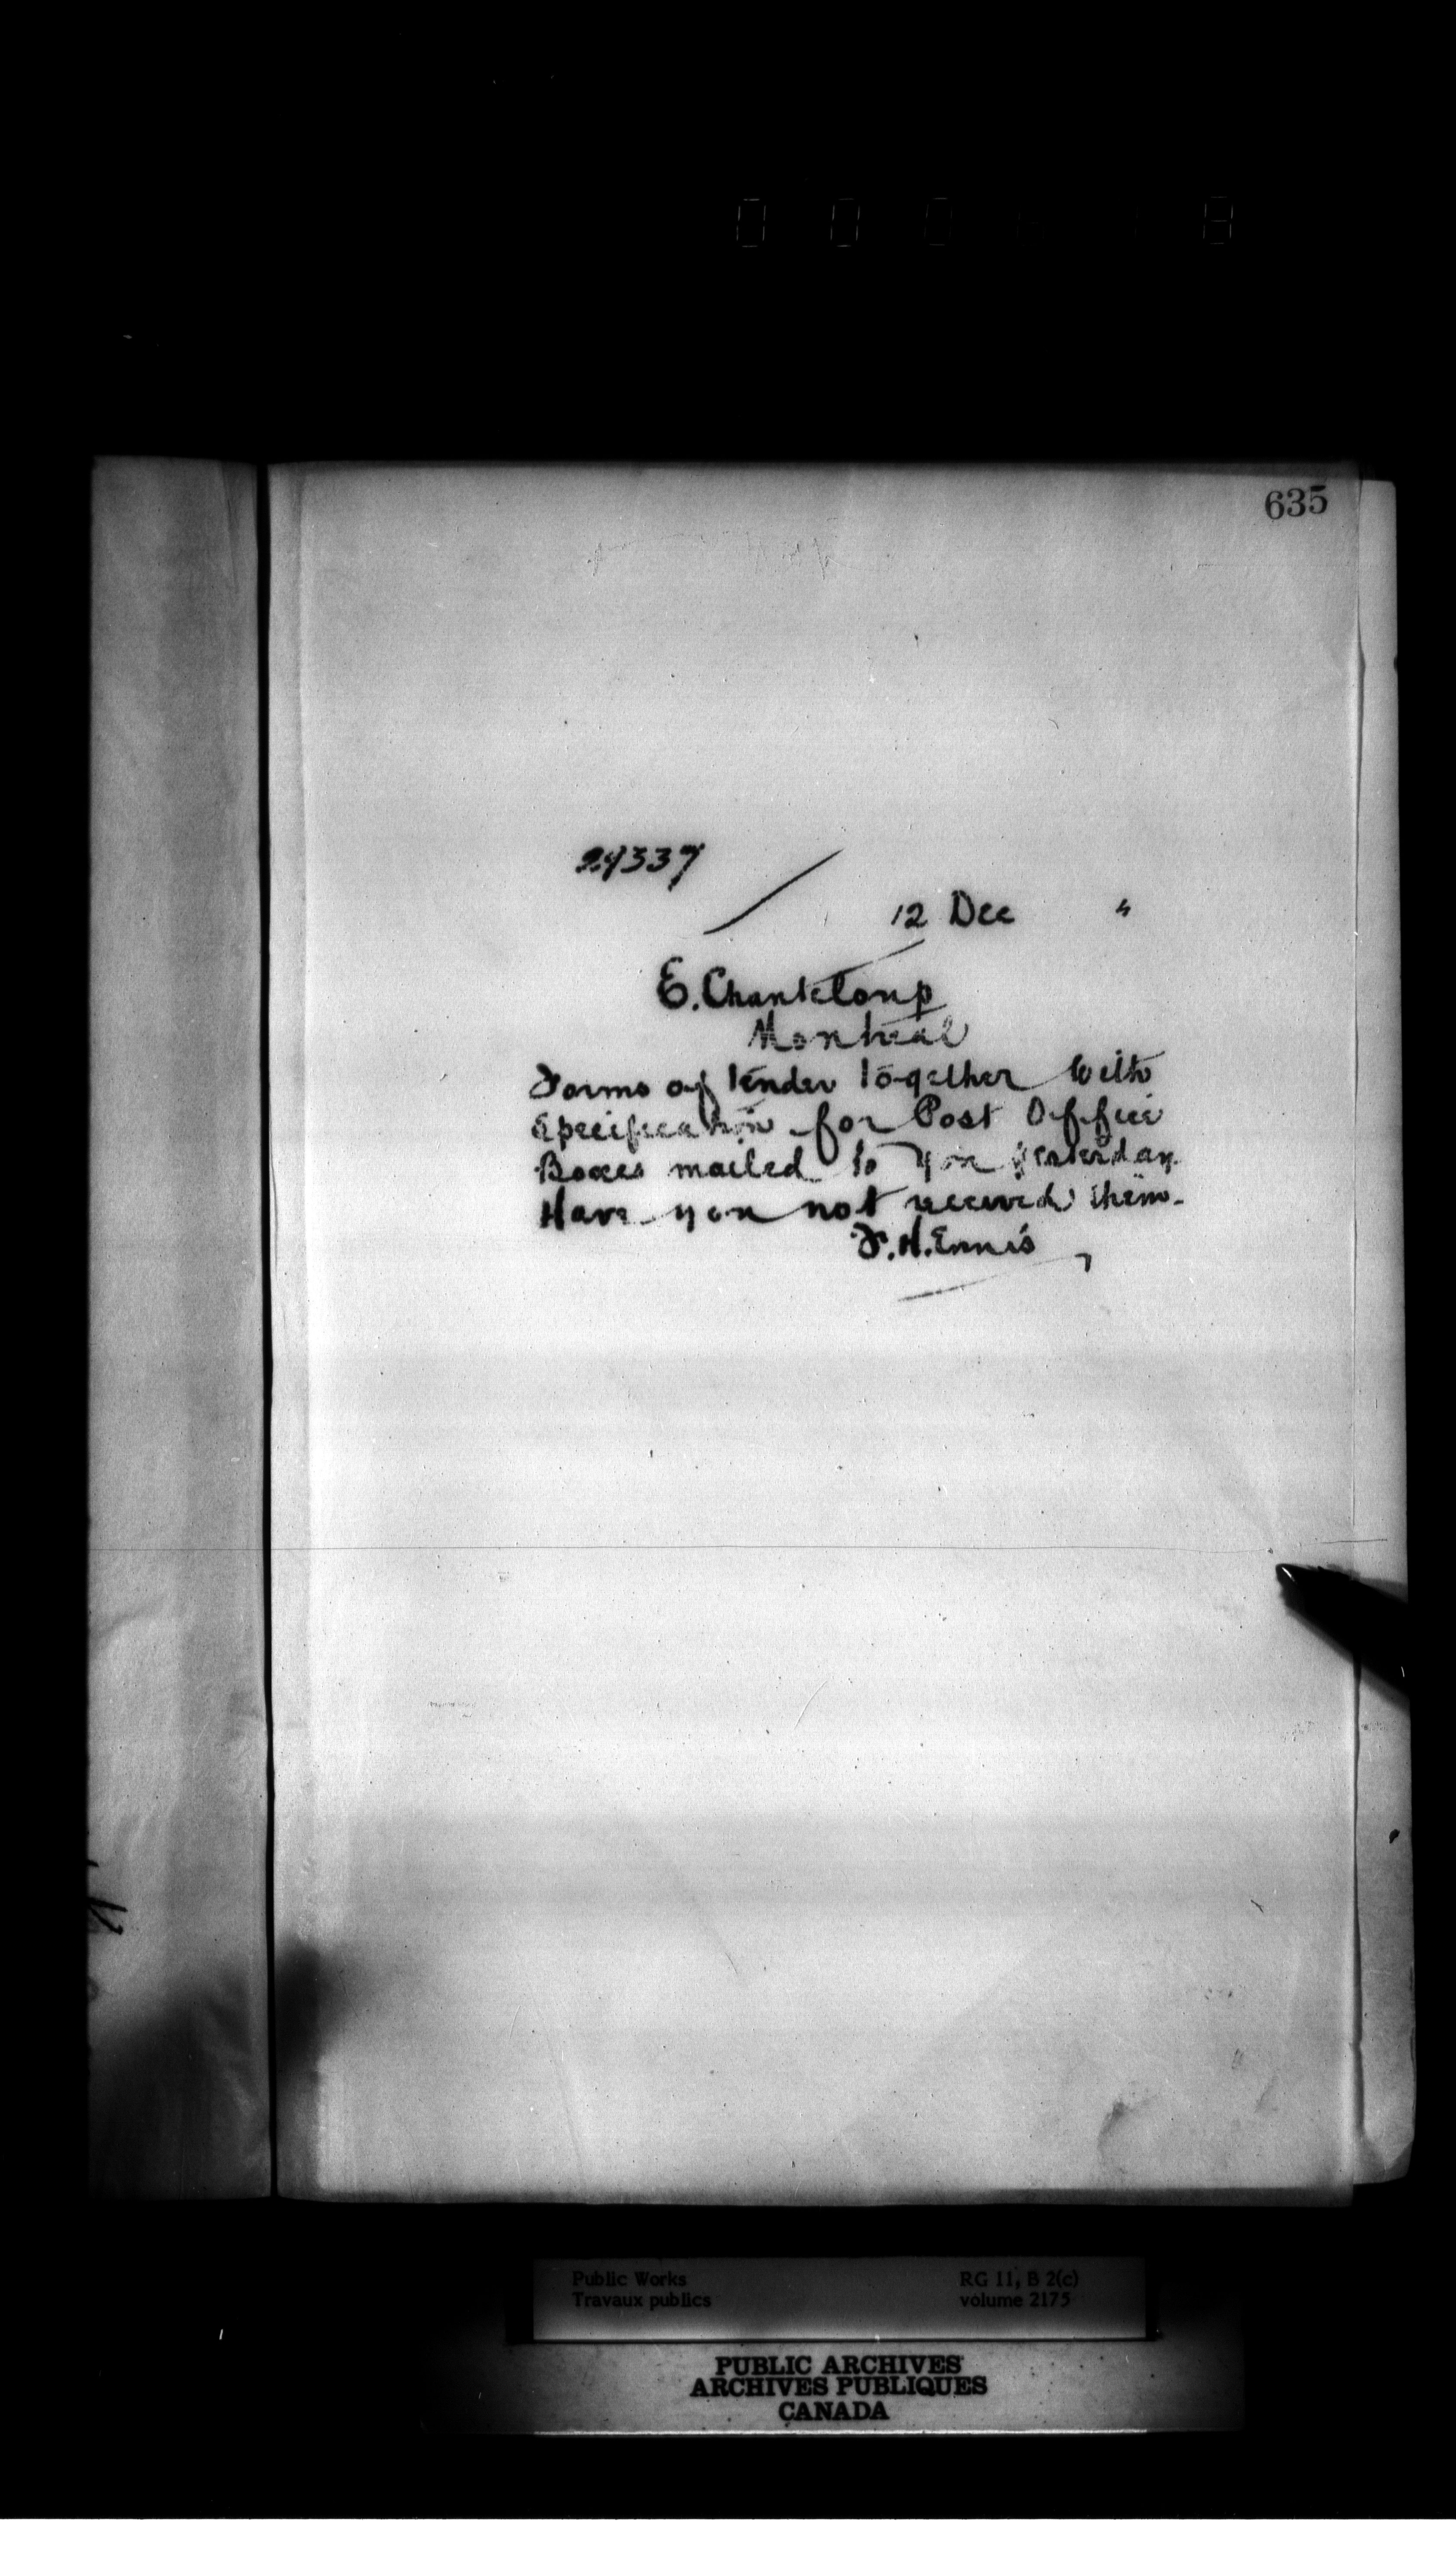 635
24337
12 Dec "
E. Chanteloup
Montreal
Forms of tender together with
specification for Post Office
Boxes mailed to you yesterday.
Have you not received them.
F. H. Ennis
Public Works RG 11, B 2(c)
Travaux publics volume 2175
PUBLIC ARCHIVES
ARCHIVES PUBLIQUES
CANADA